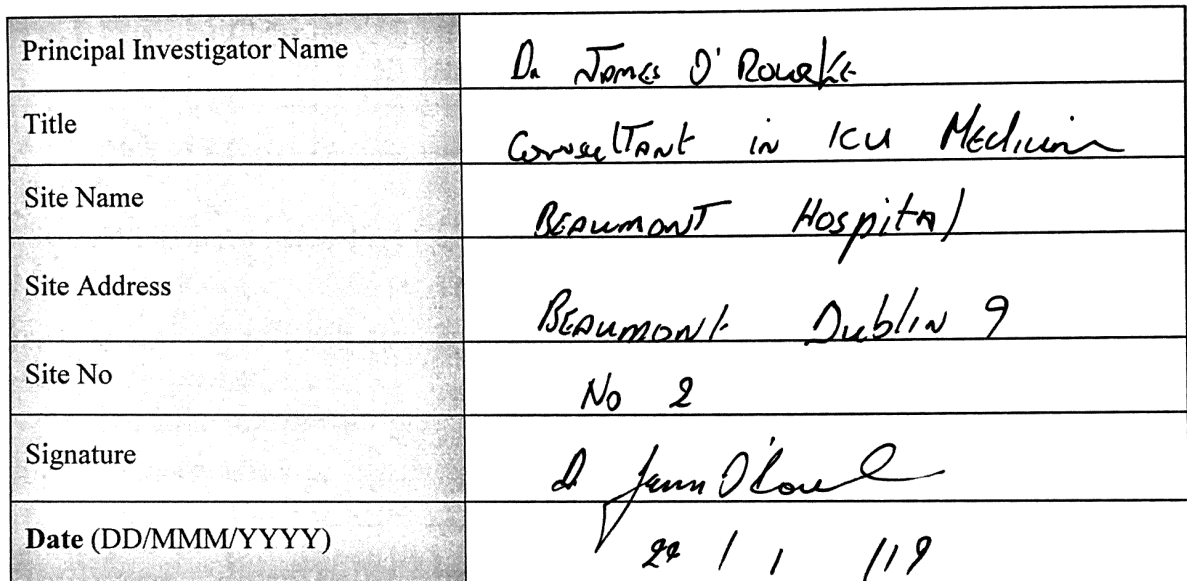 Principal Investigator Name Dr James O'Rourke
Title Consultant in ICU Medicine
Site Name BEAUMONT Hospital
Site Address BEAUMONT Dublin 9
Site No No 2
Signature Dr James O'Rourke
Date (DD/MMM/YYYY) / 1 /19